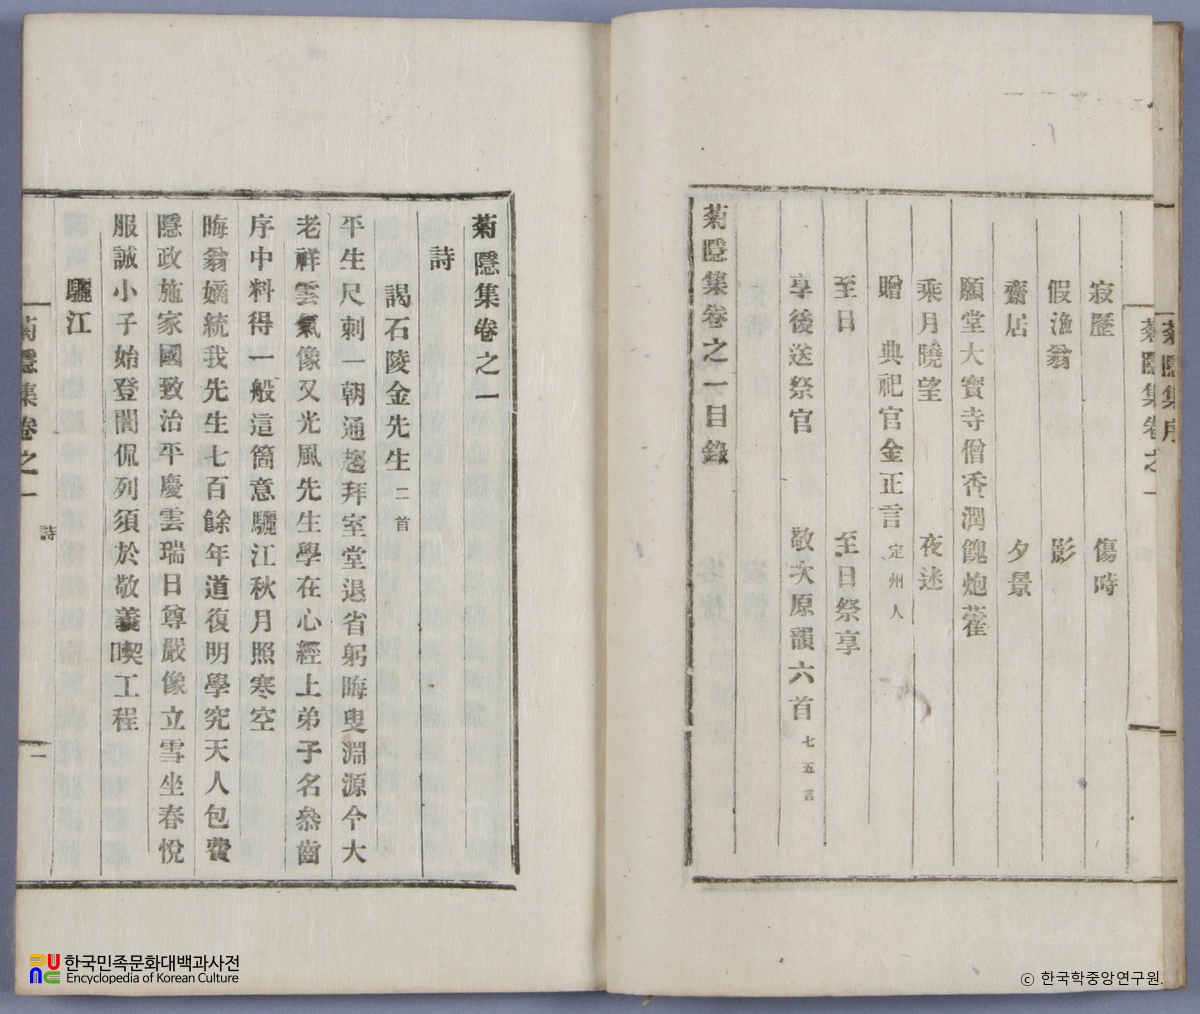 菊隱集序
菊隱集卷之一
寂歷 傷時
假漁翁 影
齋居 夕景
願堂大寶寺僧香潤餽炮藿
乘月曉望 夜迷
贈 典祀官金正言 定州人
至日 至日祭享
享後送祭官 敬次原韻六首 七五言
菊隱集卷之一目錄
菊隱集卷之一
詩
謁石陵金先生 二首
平生尺刺一朝通趨拜室堂退省躬晦叟淵源今大
老祥雲氣像又光風先生學在心經上弟子名叅齒
序中料得一般這箇意驪江秋月照寒空
晦翁嫡統我先生七百餘年道復明學究天人包費
隱政施家國致治平慶雲瑞日尊嚴像立雪坐春悅
服誠小子始登誾侃列須於敬義喫工程
驪江
菊隱集卷之一 詩 一
한국민족문화대백과사전
Encyclopedia of Korean Culture
© 한국학중앙연구원